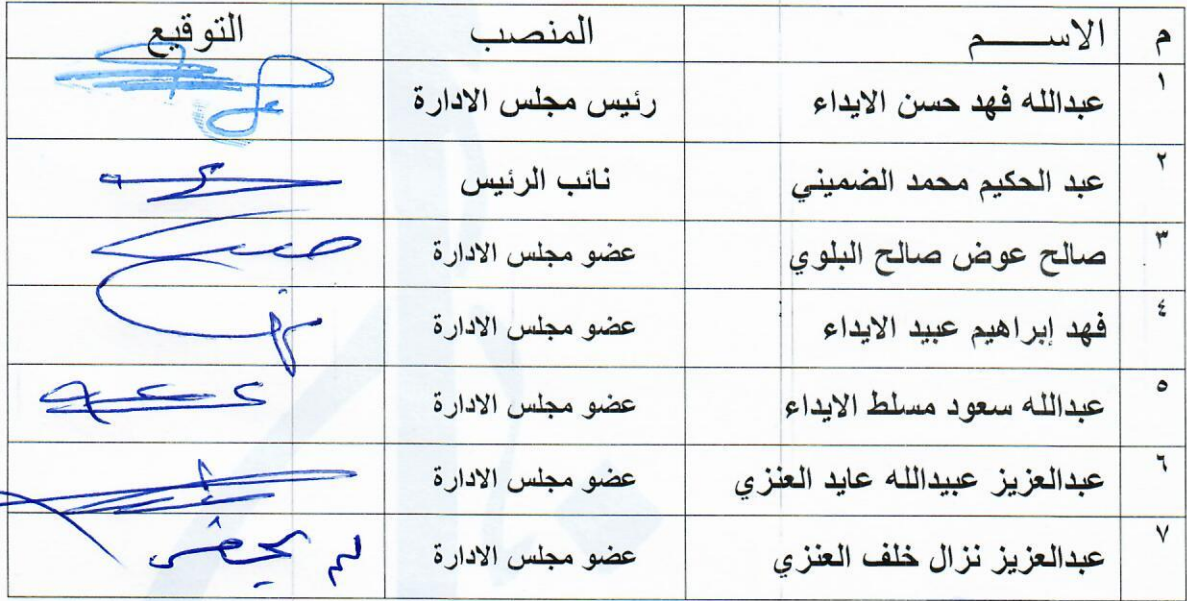 م الاســـــم المنصب التوقيع
١ عبدالله فهد حسن الايداء رئيس مجلس الادارة
٢ عبد الحكيم محمد الضميني نائب الرئيس
٣ صالح عوض صالح البلوي عضو مجلس الادارة
٤ فهد إبراهيم عبيد الايداء عضو مجلس الادارة
٥ عبدالله سعود مسلط الايداء عضو مجلس الادارة
٦ عبدالعزيز عبيدالله عايد العنزي عضو مجلس الادارة
٧ عبدالعزيز نزال خلف العنزي عضو مجلس الادارة لم يحضر